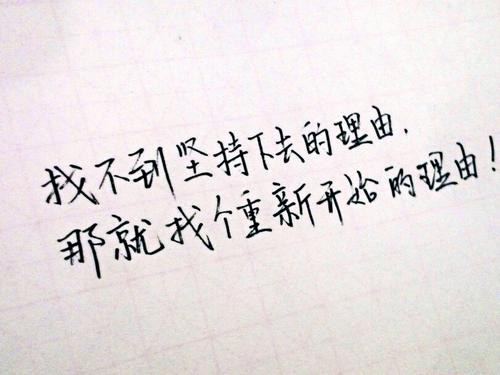 找不到坚持下去的理由.
那就找个重新开始的理由!